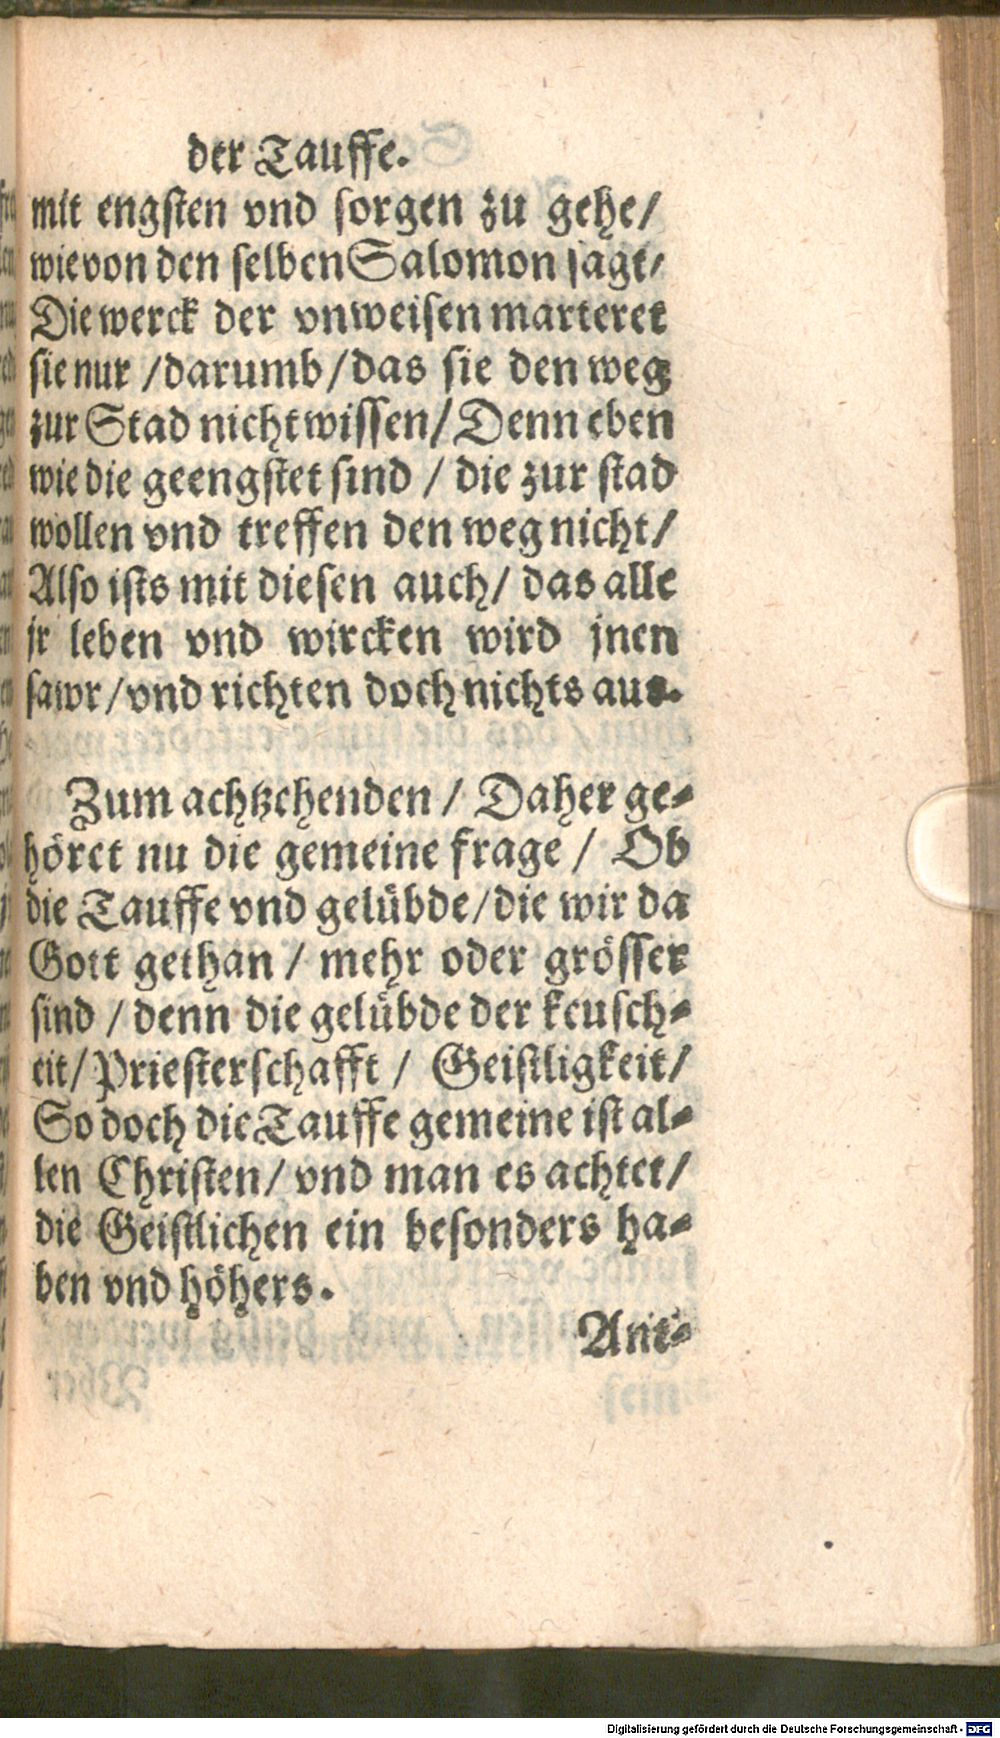 der Tauffe.
mit engsten vnd sorgen zu gehe/
wie von den selben Salomon sagt/
Die werck der vnweisen marteret
sie nur /darumb/das sie den weg
zur Stad nicht wissen/Denn eben
wie die geengstet sind / die zur stad
wollen vnd treffen den weg nicht/
Also ists mit diesen auch/ das alle
jr leben vnd wircken wird jnen
sawr/vnd richten doch nichts aus.
Zum achtzehenden / Daher ge-
höret nu die gemeine frage / Ob
die Tauffe vnd gelübde/die wir da
Gott gethan / mehr oder grösser
sind / denn die gelübde der keusch-
eit/Priesterschafft / Geistligkeit/
So doch die Tauffe gemeine ist al-
len Christen/ vnd man es achtet/
die Geistlichen ein besonders ha-
ben vnd höhers.
Ant-
Digitalisierung gefördert durch die Deutsche Forschungsgemeinschaft - DFG